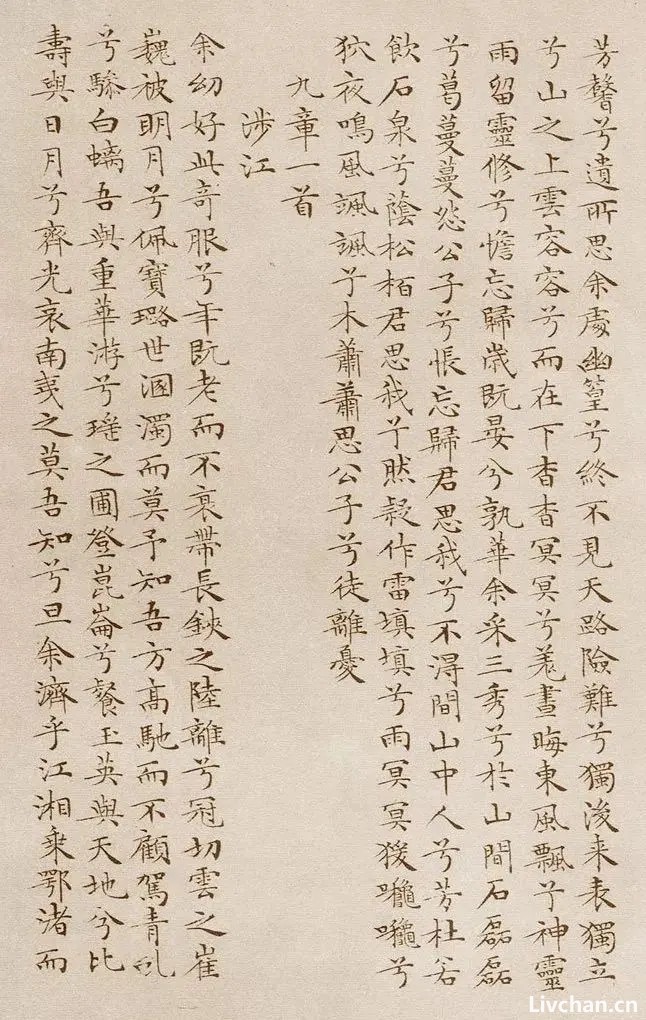 芳馨兮遺所思余處幽篁兮終不見天路險難兮獨後来表獨立
兮山之上雲容容兮而在下杳杳冥冥兮羌晝晦東風飄兮神靈
雨留靈修兮憺忘歸歲既晏兮孰華余采三秀兮於山間石磊磊
兮葛蔓蔓怨公子兮悵忘歸君思我兮不淂間山中人兮芳杜若
飲石泉兮蔭松栢君思我兮然疑作雷填填兮雨冥冥猨囖囖兮
狖夜鳴風颯颯兮木蕭蕭思公子兮徒離憂
九章一首
涉江
余幼好此竒服兮年既老而不衰帶長鋏之陸離兮冠切雲之崔
巍被明月兮佩寶璐世溷濁而莫予知吾方髙馳而不顧駕青虬
兮驂白螭吾與重華游兮瑤之圃登崑崙兮餐玉英與天地兮比
壽與日月兮齊光哀南夷之莫吾知兮旦余濟乎江湘乗鄂渚而
Livchan.cn